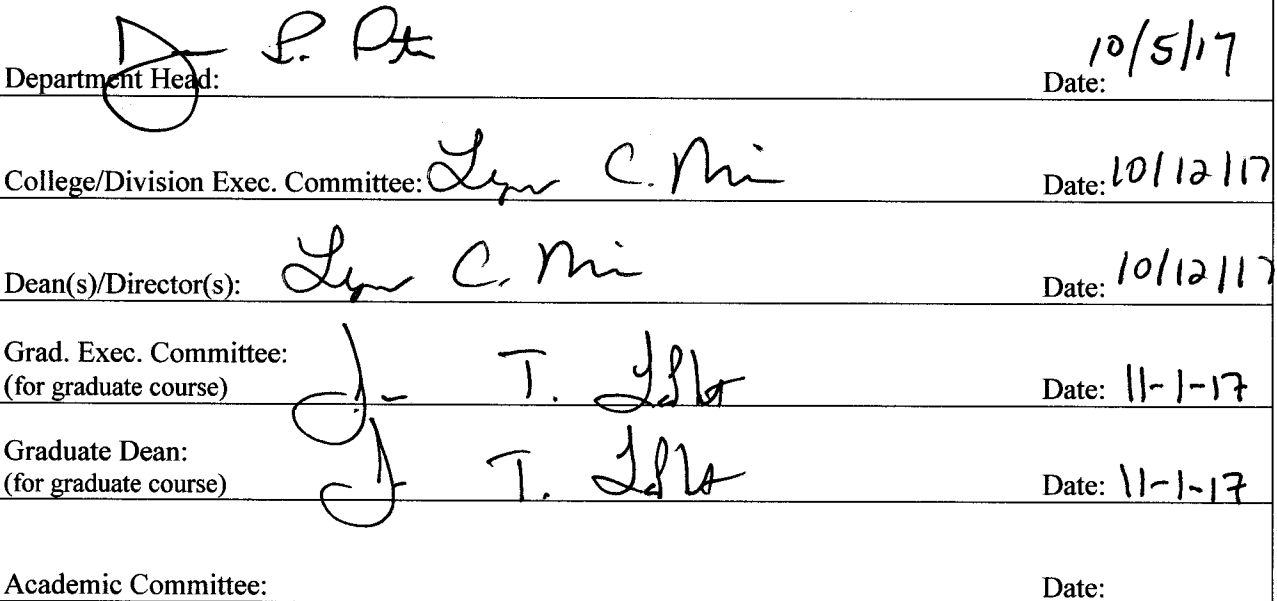 Department Head: Date: 10/5/17
College/Division Exec. Committee: C. Date: 10/12/17
Dean(s)/Director(s): C. Date: 10/12/17
Grad. Exec. Committee:
(for graduate course) T. Date: 11-1-17
Graduate Dean:
(for graduate course) T. Date: 11-1-17
Academic Committee: Date: